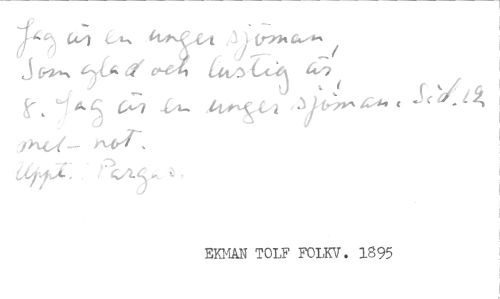 Jag är en unger sjöman,
Som glad och lustig är,
8. Jag är en unger sjöman. Sid. 12
mel-not.
Uppt. Pargas.
EKMAN TOLF FOLKV. 1895